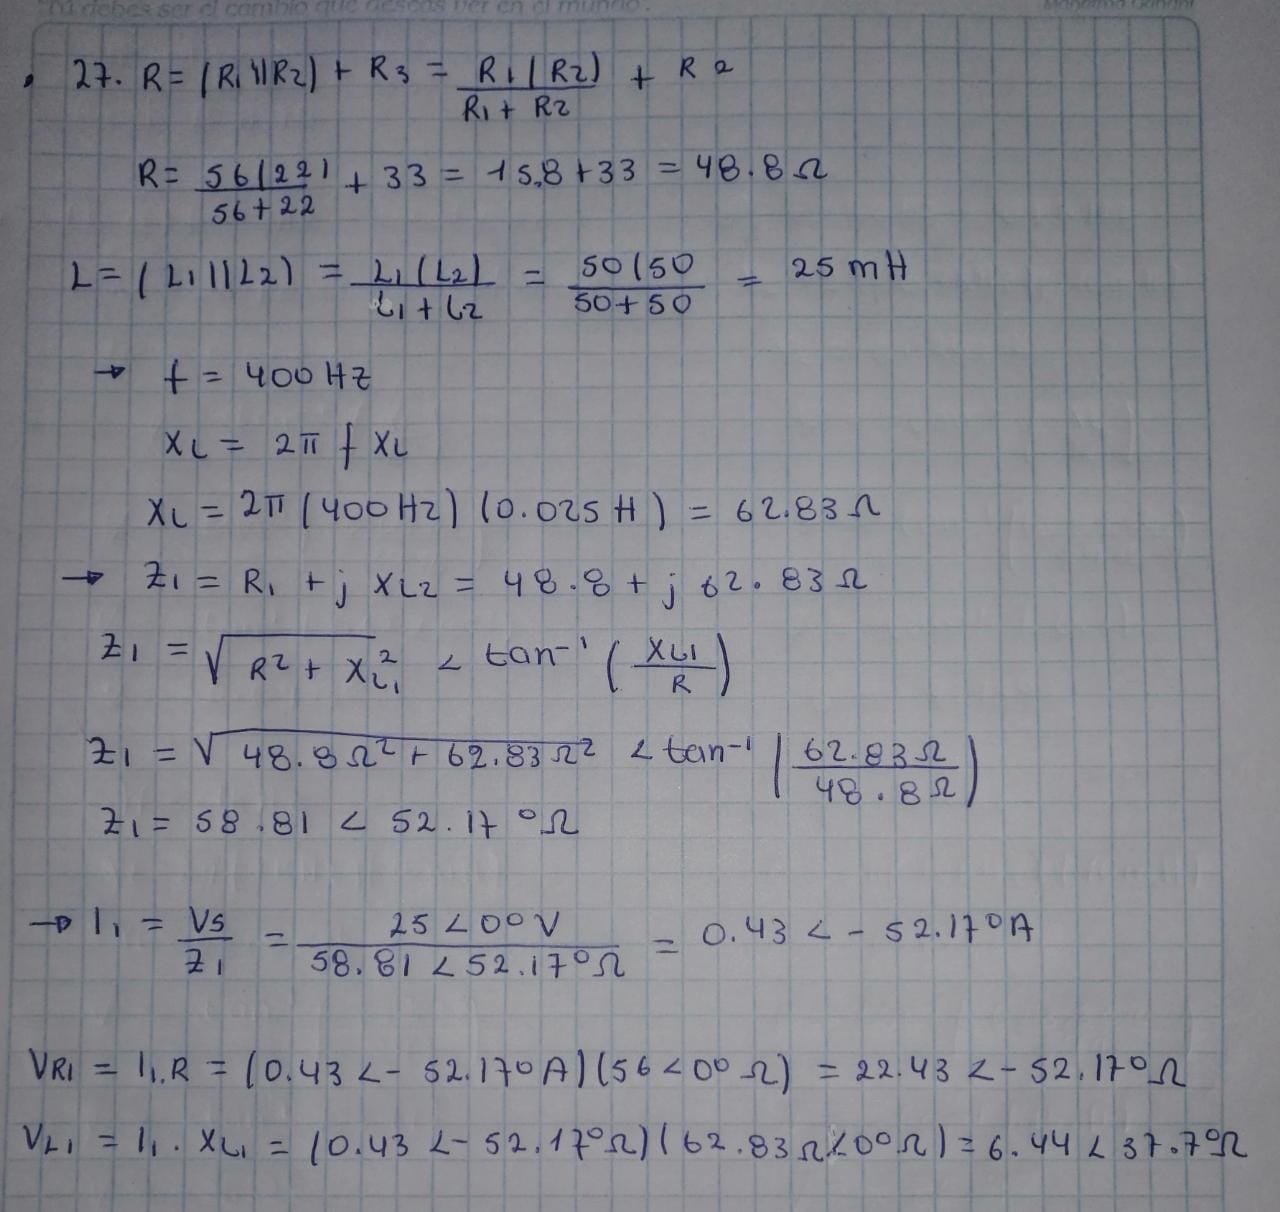 Tú debes ser el cambio que deseas ver en el mundo. Mahatma Gandhi
27. R = (R1 || R2) + R3 = R1(R2) / R1 + R2 + R2
R = 56(22) / 56 + 22 + 33 = 15.8 + 33 = 48.8 Ω
L = (L1 || L2) = L1(L2) / L1 + L2 = 50(50 / 50 + 50 = 25 mH
→ f = 400 Hz
XL = 2π f XL
XL = 2π (400 Hz) (0.025 H) = 62.83 Ω
→ Z1 = R1 + j XL2 = 48.8 + j 62.83 Ω
Z1 = √(R² + XL1²) < tan⁻¹ (XL1 / R)
Z1 = √(48.8 Ω² + 62.83 Ω²) < tan⁻¹ (62.83 Ω / 48.8 Ω)
Z1 = 58.81 < 52.17 °Ω
→ I1 = Vs / Z1 = 25 < 0° V / 58.81 < 52.17° Ω = 0.43 < - 52.17° A
VR1 = I1.R = (0.43 < - 52.17° A) (56 < 0° Ω) = 22.43 < - 52.17° Ω
VL1 = I1 . XL1 = (0.43 < - 52.17° Ω) (62.83 Ω < 0° Ω) = 6.44 < 37.7° Ω